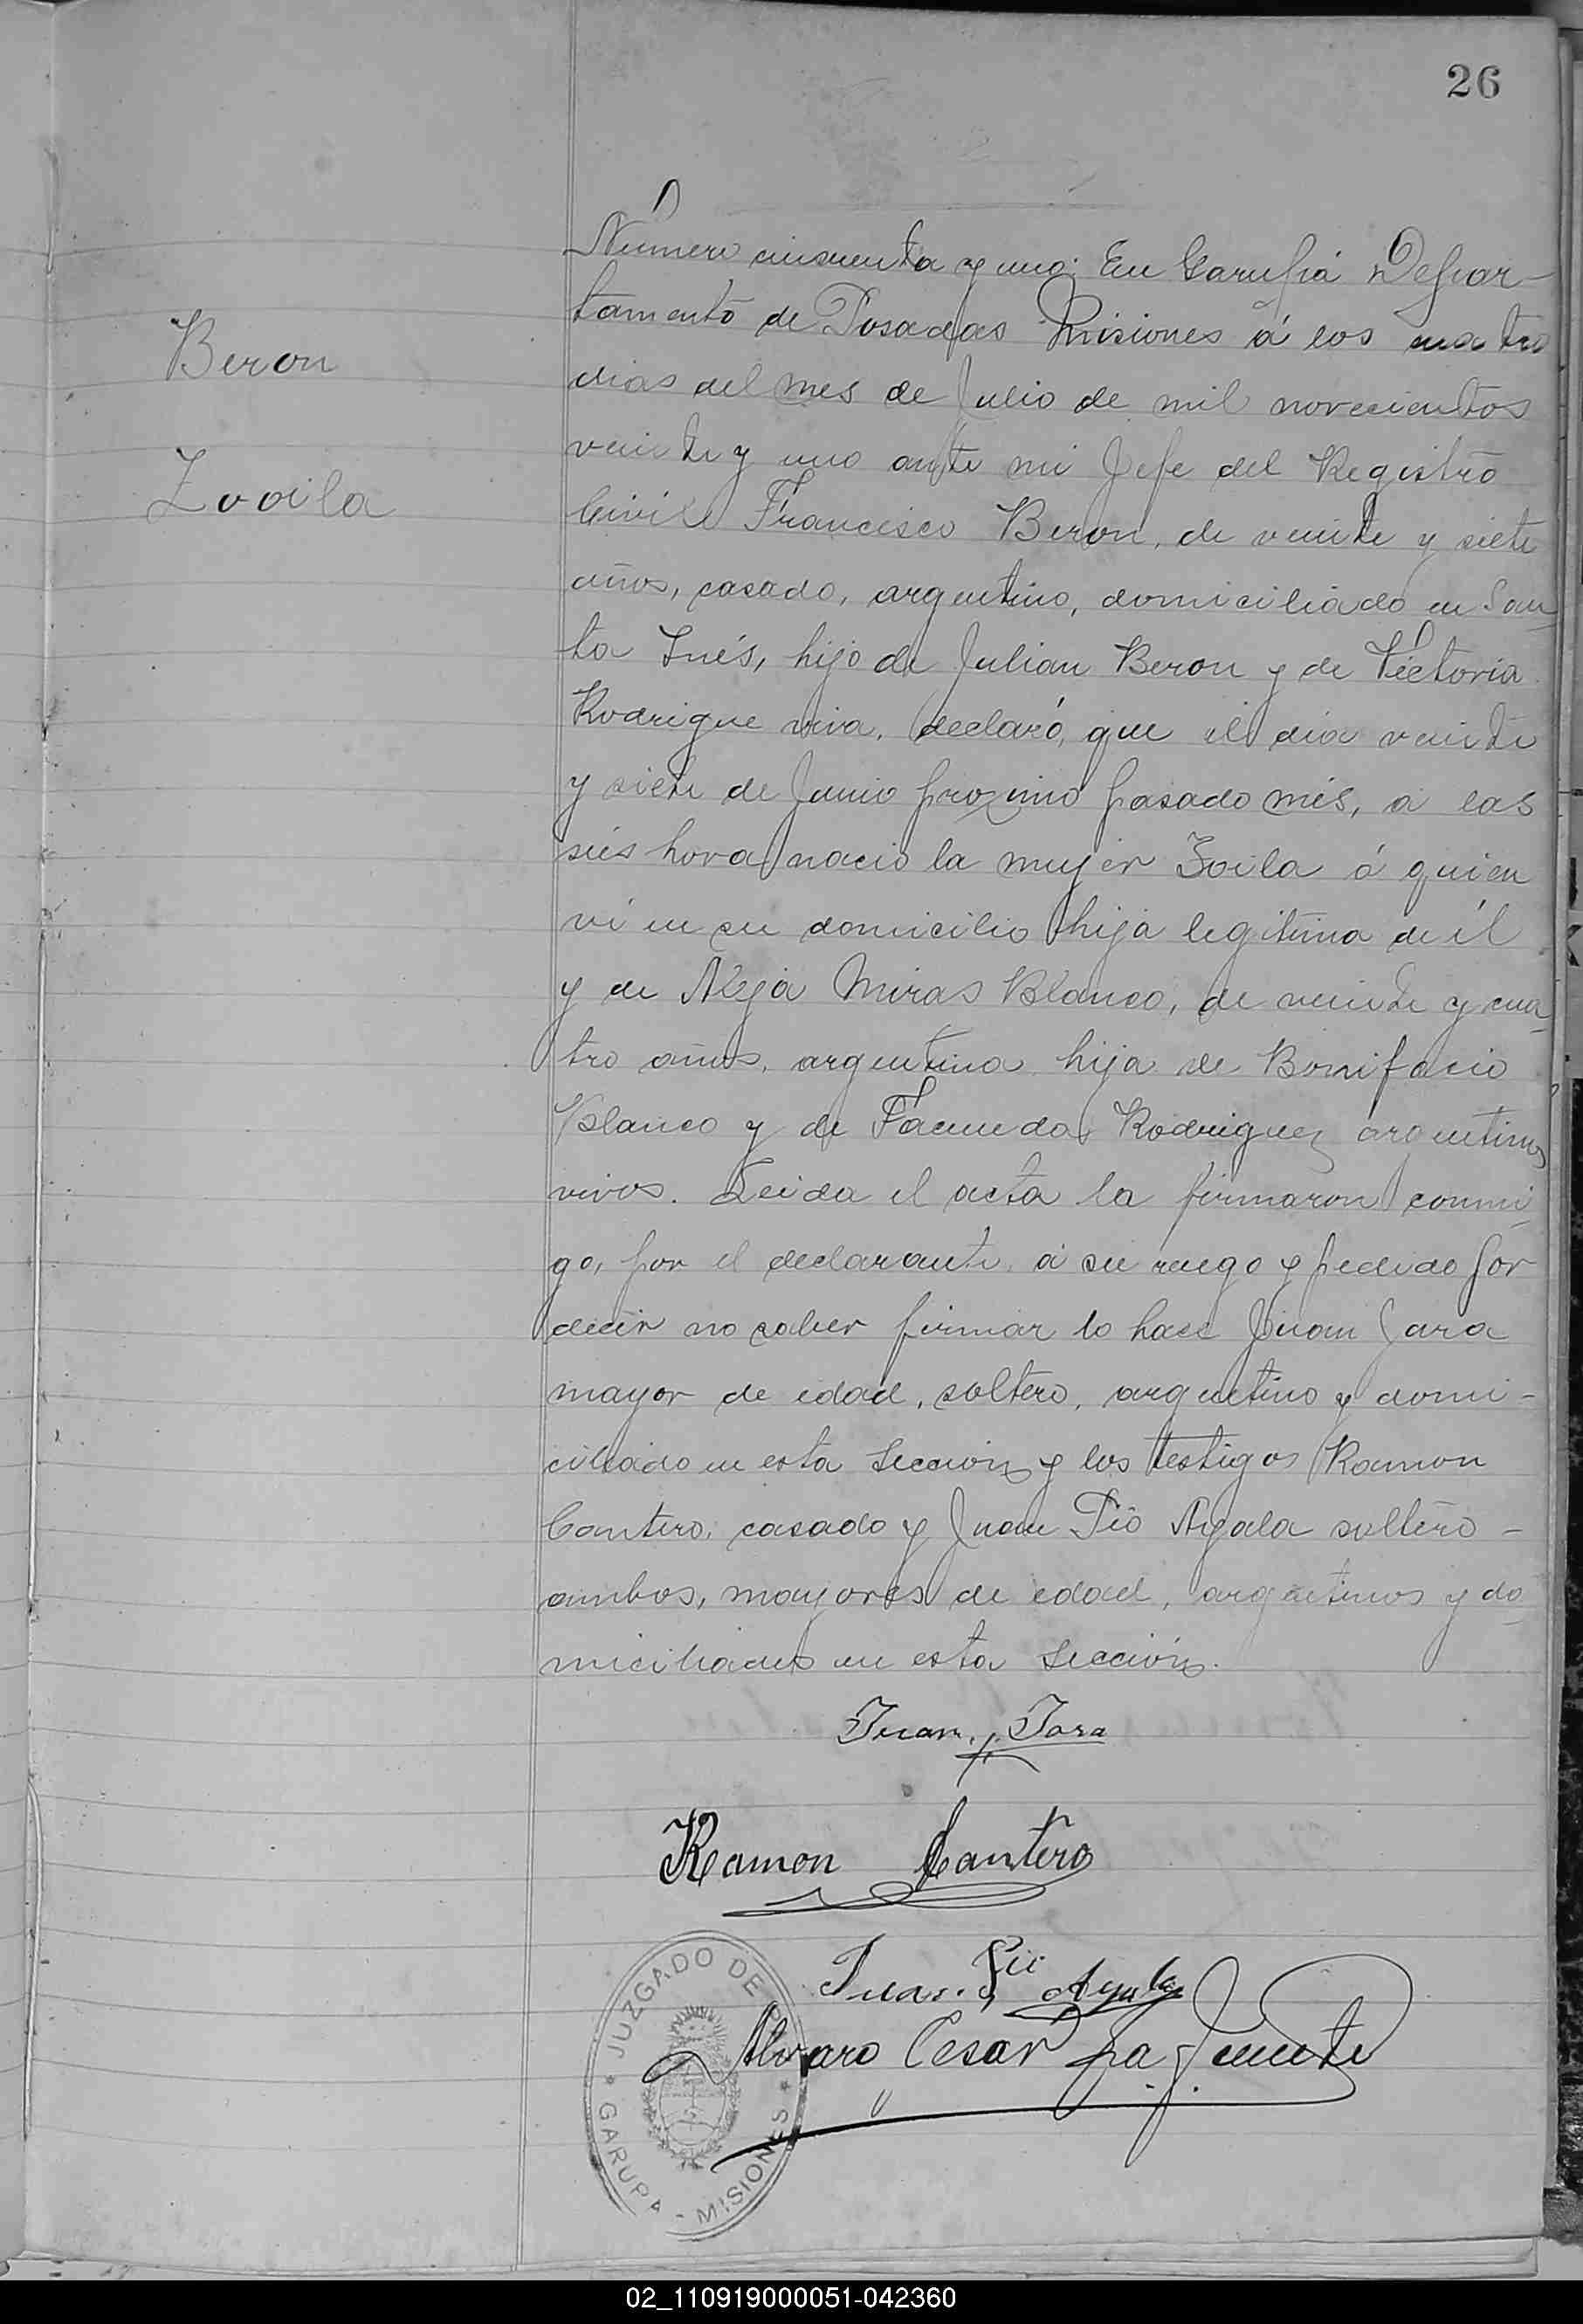 26
Número cincuenta y uno: En Garupá Depar-
tamento de Posadas Misiones á los cuatro
dias del mes de Julio de mil novecientos
veinte y uno ante mi Jefe del Registro
Civil Francisco Beron, de veinte y siete
años, casado, argentino, domiciliado en San_
ta Inés, hijo de Julian Beron y de Victoria
Rodrigue viva, declaró, que el dia veinte
y siete de Junio proximo pasado mes, a las
seis hora nacio la mujer Zoila á quien
ví en su domicilio hija legitima de él
y de Alejá Miras Blanco, de veinte y cua_
tro años, argentina hija de Bonifacio
Blanco y de Facunda Rodriguez argentinos
vivos. Leida el acta la firmaron conmi_
go, por el declarante, á su ruego y pedido por
decir no saber firmar lo hace Juan Jara
mayor de edad, soltero, argentino y domi-
ciliado en esta Sección y los testigos Ramon
Cantero, casado y Juan Pio Ayala soltero -
ambos, mayores de edad, argentinos y do_
miciliados en esta Sección.
Beron
Zooila
Juan Jara
Ramon Cantero
Juan Pio Ayala
Alvaro Cesar
JUZGADO DE
GARUPA - MISIONES
02_110919000051-042360